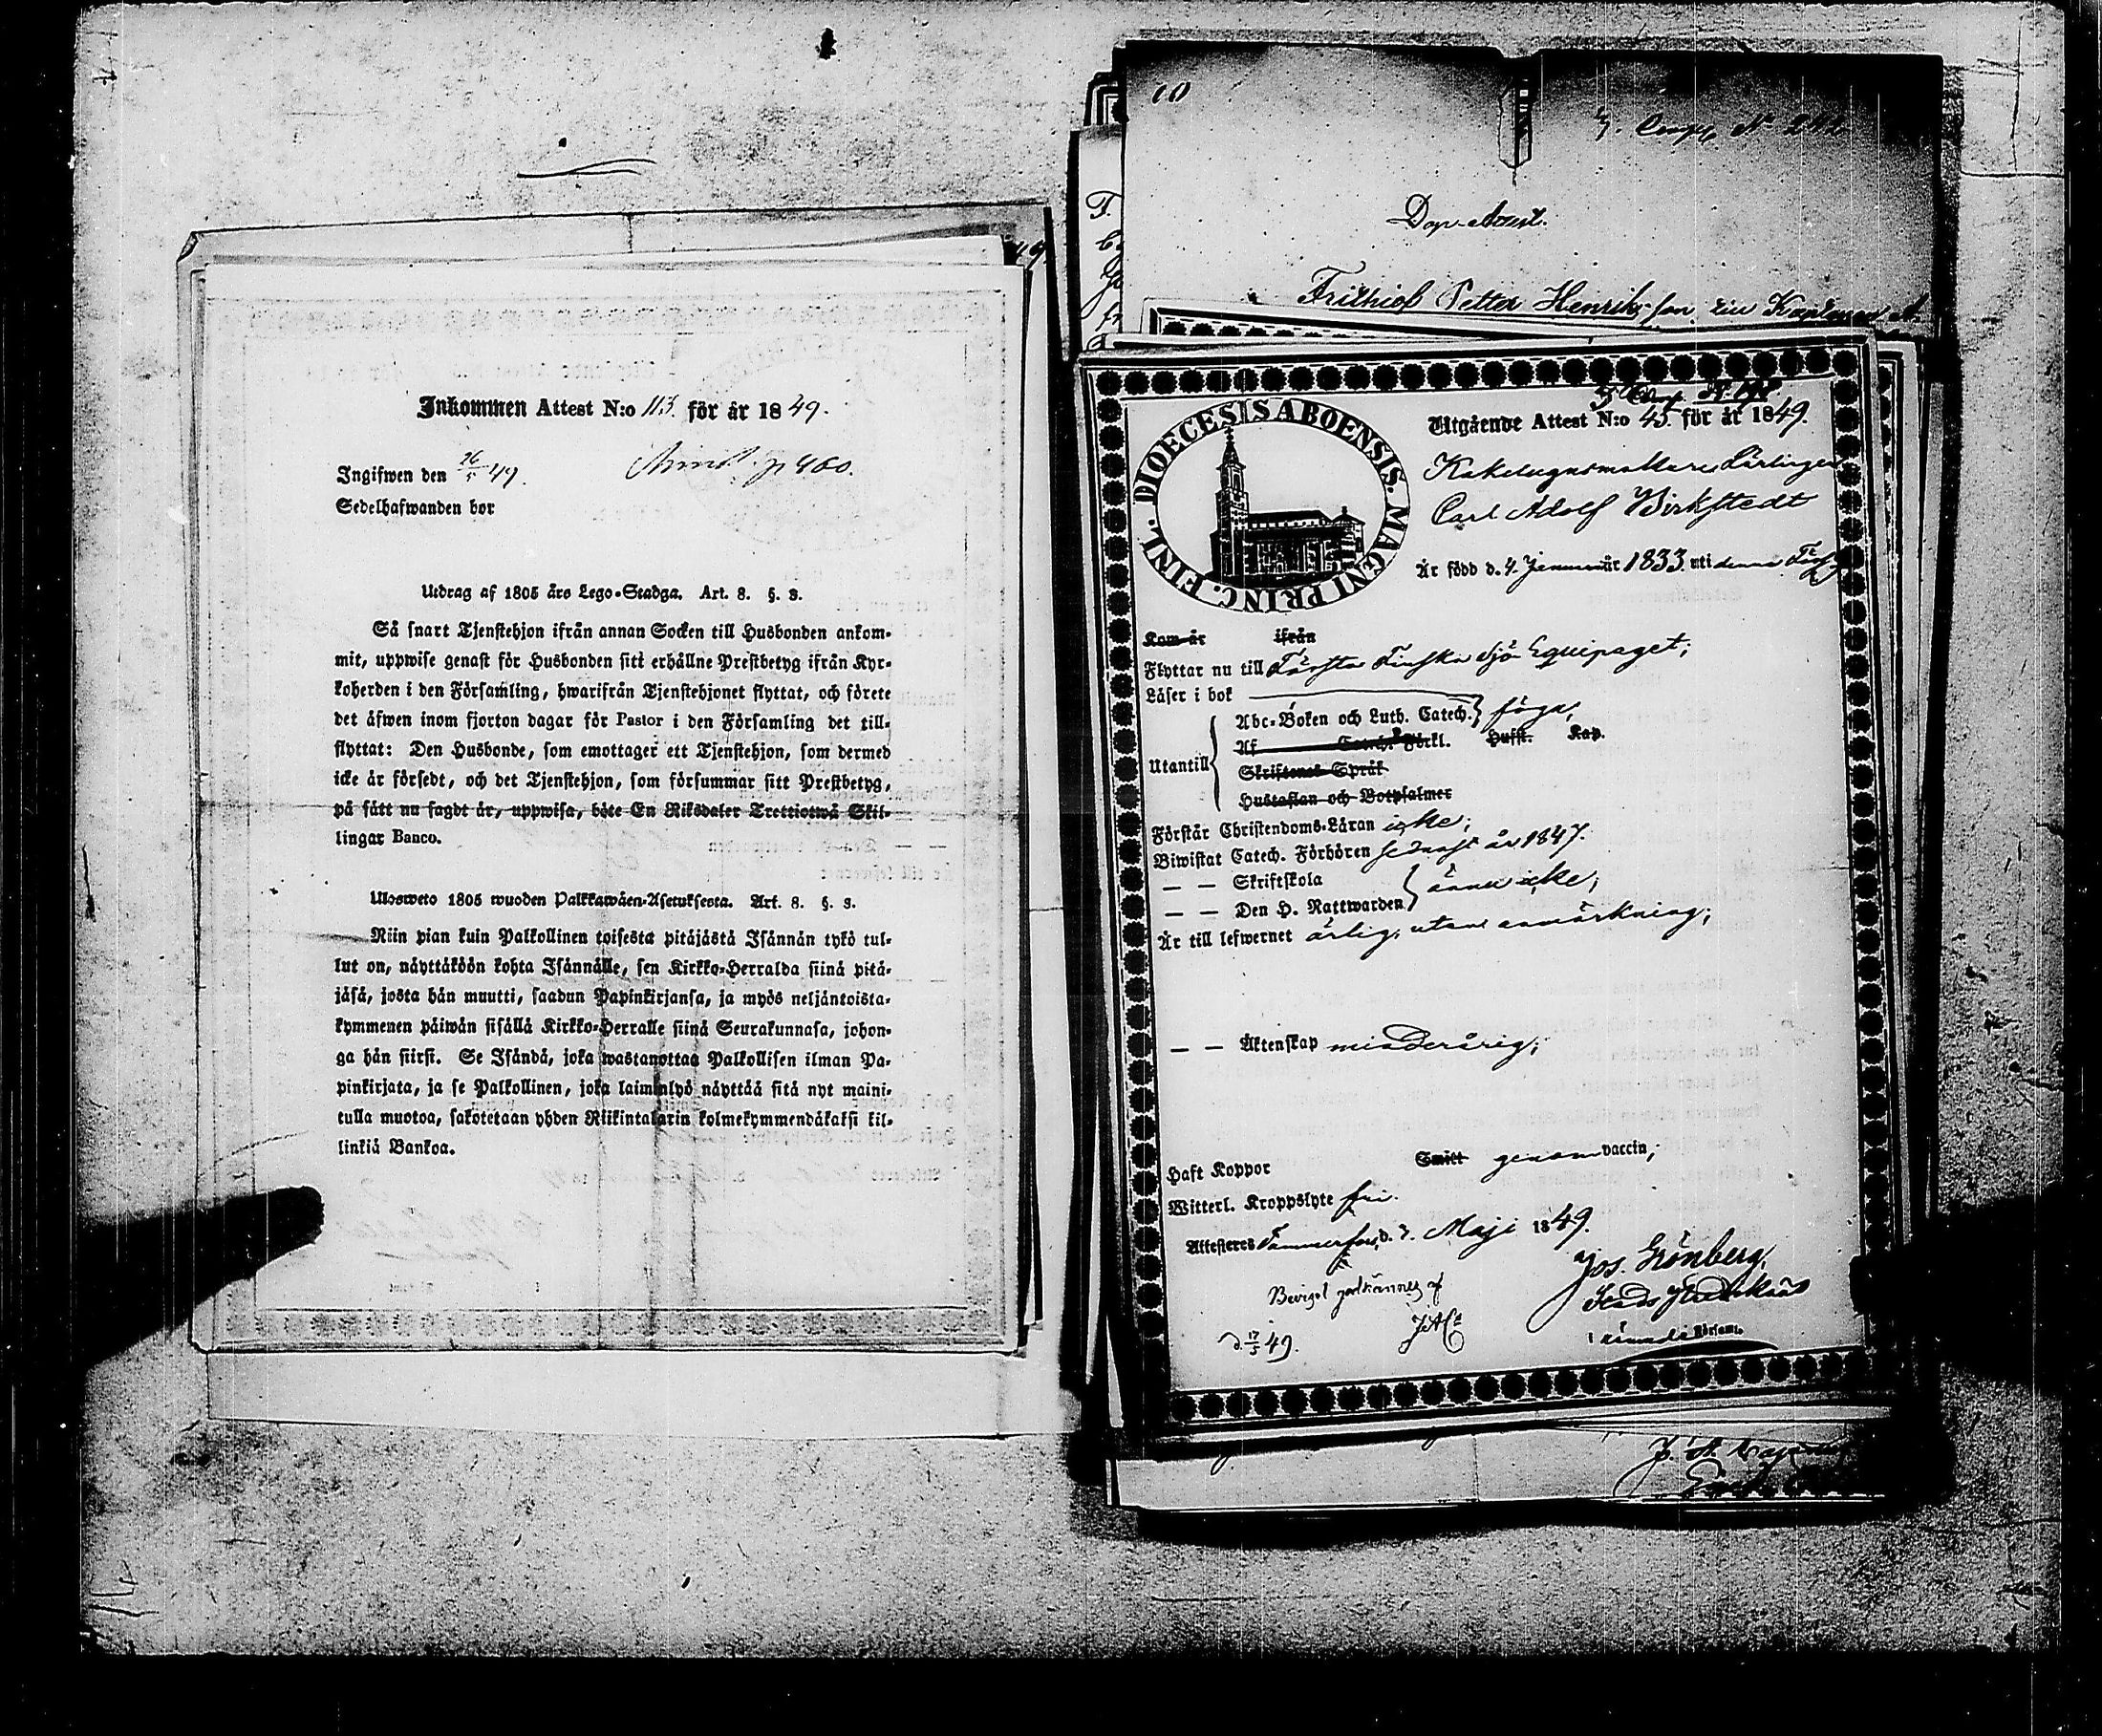 Inkommen Attest N:o 113. för år 1849.
Ingifwen den 26/5 49. p 460.
Sedelhafwanden bor
Utdrag af 1805 års Lego-Stadga. Art. 8. §. 3.
Så snart Tjenstehjon ifrån annan Socken till Husbonden ankom-
mit, uppwise genast för Husbonden sitt erhållne Prestbetyg ifrån Kyr-
koherden i den Församling, hwarifrån Tjenstehjonet flyttat, och förete
det äfwen inom fjorton dagar för Pastor i den Församling det till-
flyttat: Den Husbonde, som emottager ett Tjenstehjon, som dermed
icke är försedt, och det Tjenstehjon, som försummar sitt Prestbetyg,
på sätt nu sagdt är, uppwisa, böte En Riksdaler Trettiotwå Skil-
lingar Banco.
Ulosweto 1805 wuoden Palkkawäen-Asetuksesta. Art. 8. §. 3.
Niin pian kuin Palkollinen toisesta pitäjästä Isännän tykö tul-
lut on, näyttäköön kohta Isännälle, sen Kirkko-Herralda siinä pitä-
jäsä, josta hän muutti, saadun Papinkirjansa, ja myös neljäntoista-
kymmenen päiwän sisällä Kirkko-Herralle siinä Seurakunnasa, johon-
ga hän siirsi. Se Isändä, joka wastanottaa Palkollisen ilman Pa-
pinkirjata, ja se Palkollinen, joka laiminlyö näyttää sitä nyt maini-
tulla muotoa, sakotetaan yhden Riikintalarin kolmekymmendäkaksi kil-
linkiä Bankoa.
Dop-Attest.
Frithiof Petter Henriksson
DIOECESIS ABOENSIS. MAGNI PRINC. FINL.
Utgående Attest N:o 45. för år 1849.
Kakelugnsmakare Lärlingen
Carl Adolf Birkstedt
Är född d. 4 Januari år 1833. uti denna
Kom år ifrån
Flyttar nu till Första Finska Sjö Equipaget;
Läser i bok
Abc-Boken och Luth. Catech. föga;
Af Catech. Förkl. Hufst. Kap.
Utantill
Skriftenes Språk
Hustaflan och Botpsalmer
Förstår Christendoms-Läran icke;
Biwistat Catech. Förhören sednast år 1847.
— — Skriftskola
— — Den H. Nattwarden ännu icke;
Är till lefwernet ärlig, utan anmärkning;
— — Äktenskap minderårig;
Haft Koppor Smitt genom vaccin;
Witterl. Kroppslyte fri.
Attesteres Tammerfors, d. 7. Maji 1849.
Jos. Grönberg,
Bevizet godkännes af
d. 17/5 49.
i Församl.